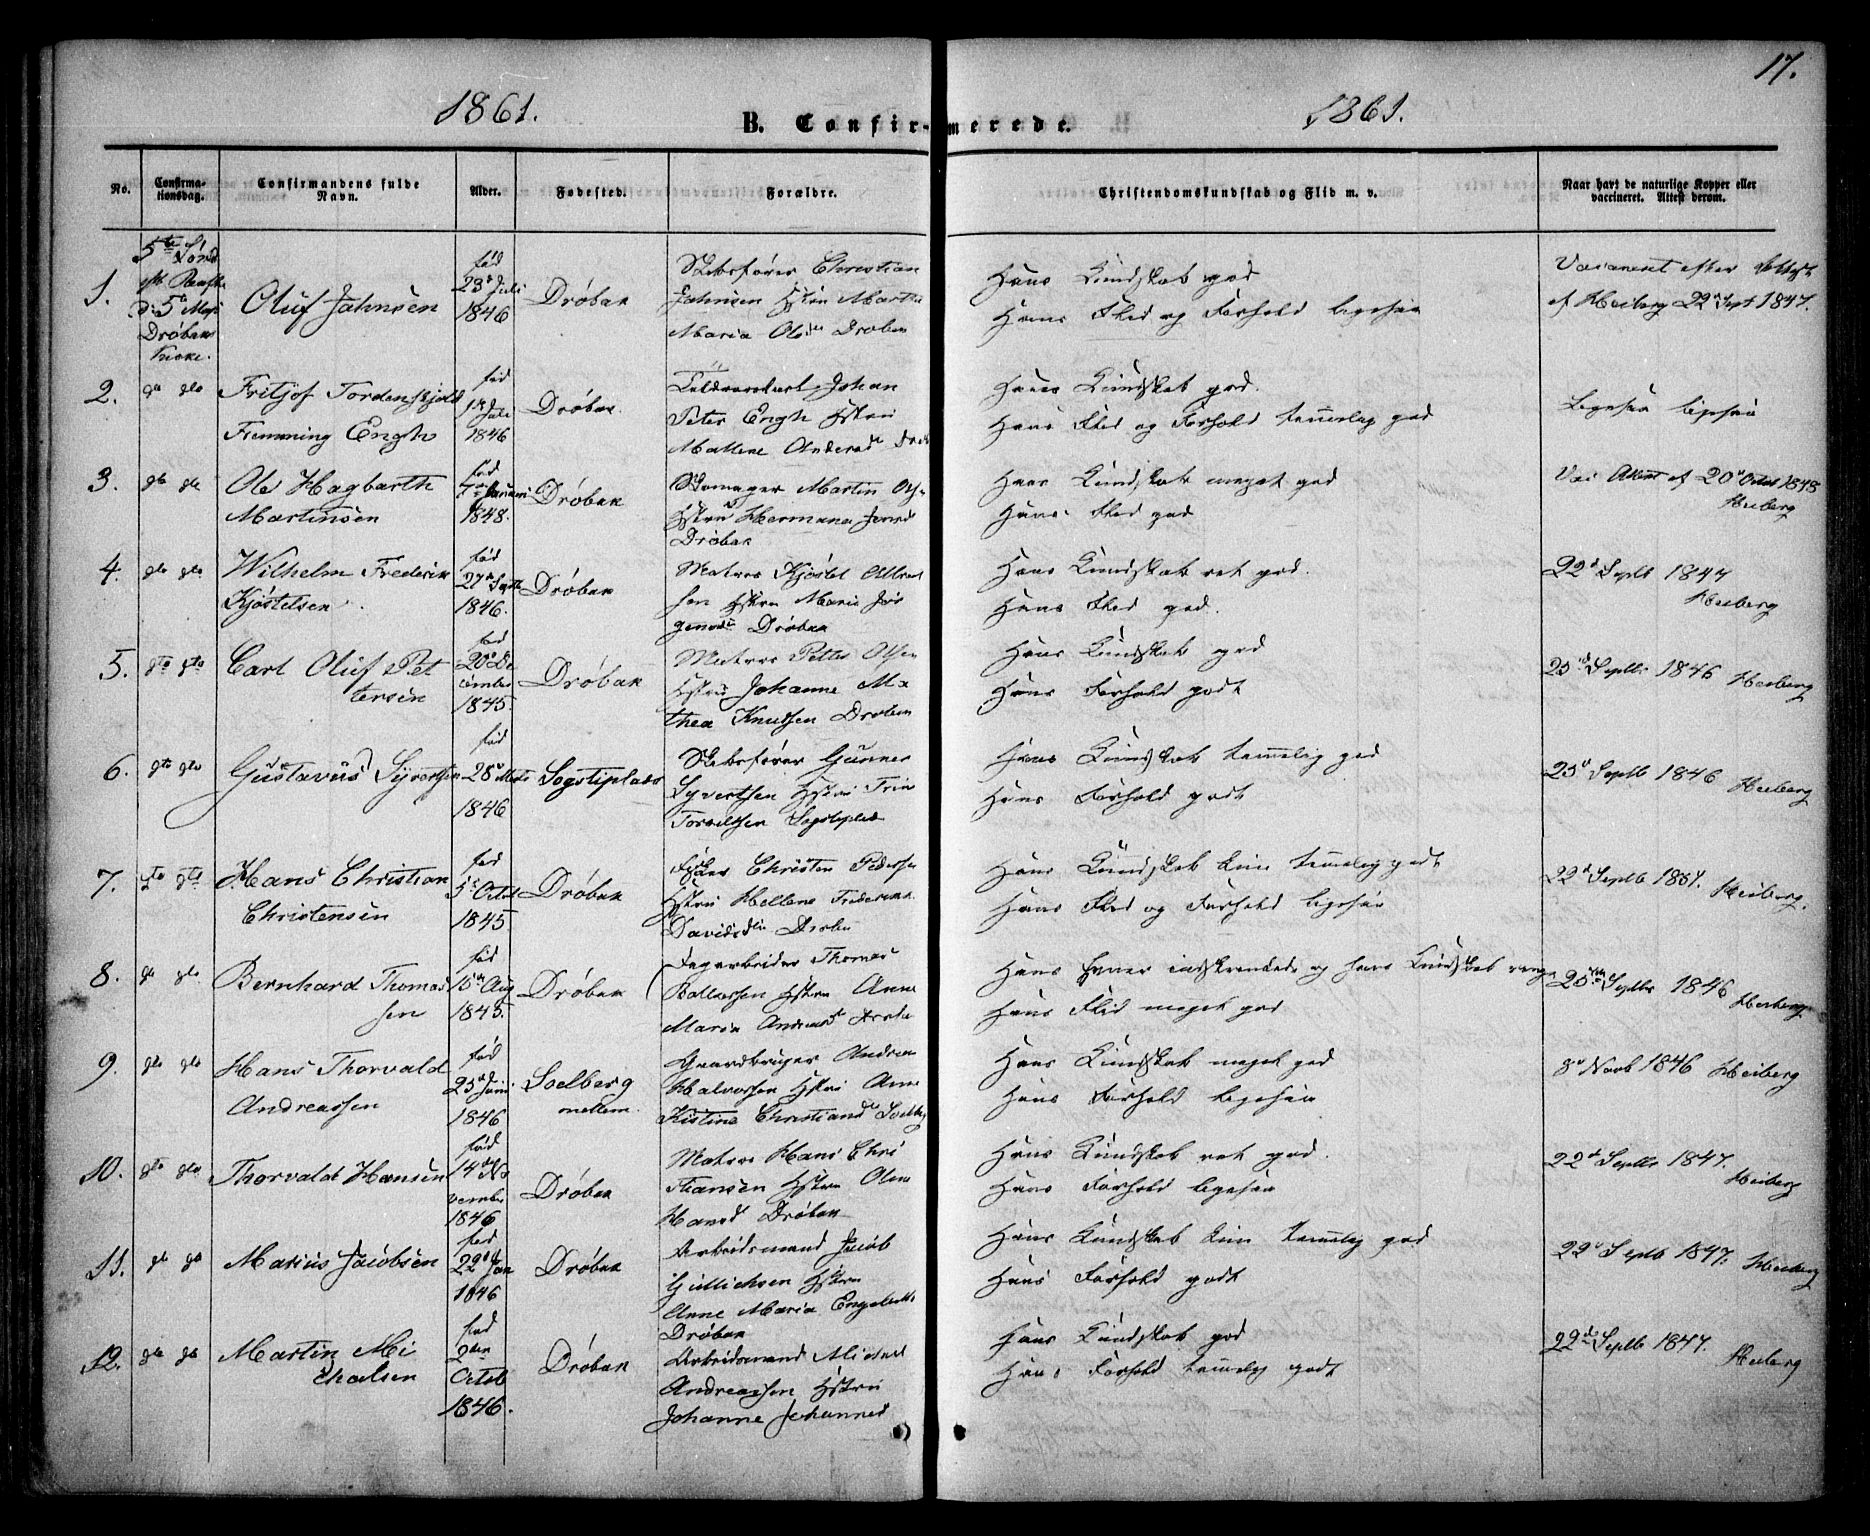 17.
1861.
B. Confirmerede.
1861.
No.
Confirmationsdag.
Confirmandens fulde Navn.
Alder.
Fødested.
Forældre.
Christendomskundskab og Flid m. v.
Naar havt de naturlige Kopper eller vaccineret. Attest derom.
1.
5te Sønd
5te Mai
Drøbaks
Kirke.
Oluf Jahnsen
fød
23d Juli
1846
Drøbak
Skibsfører Christian
Jahnsen Hstru Marthe
Maria Olsdtr Drøbak
Hans Kundskab god
Hans Flid og Forhold ligesaa
Vaccineret efter Attest
af Heiberg 22d Sept 1847.
2.
Fritjof Tordenskjold
Flemming Engh
fød
Juli
1846
Drøbak.
Johan
Peter Engh Hstru
Mallene
Hans Kundskab god.
Hans Flid og Forhold temmelig god
Ligesaa ligesaa
3.
Ole Hagbarth
Martinsen
fød
7de Januari
1848.
Drøbak
Skomager Martin Ols
Hstru Hermana
Drøbak
Hans Kundskab meget god
Hans Flid god
Vac Attest af 20d Octob 1848
Heiberg
4.
Wilhelm Frederik
Kjøstelsen
fød
27de Septb
1846.
Drøbak
Matros Kjøstel
sen Hstru Marie Jør
gensdtr Drøbak
Hans Kundskab ret god.
Hans Flid god.
22d Septb 1847
Heiberg
5.
Carl Oluf Pet
tersen
fød
20de De
cember
1845.
Drøbak
Matros Petter Olsen
Hstru Johanne Ma
thea Knudsen Drøbak
Hans Kundskab god
Hans Forhold godt
25d Septbr 1846 Heiberg
6.
Gustavus Syvertsen
fød
28de Marts
1846
Sogstiplads
Skibsfører Gunner
Syvertsen Hstru Trin
Hans Kundskab temmelig god
Hans Forhold godt
25d Septb 1846 Heiberg
7.
Hans Christian
Christensen
fød
5te Octob
1845.
Drøbak
Christen Peders
Hstru Hellene Frederikke
Davidsdtr Drøbak
Hans Kundskab kun temmelig godt
Hans Flid og Forhold ligesaa
22d Septb
Heiberg.
8.
Bernhard Thomas
sen
fød
Aug
1845.
Drøbak
Dagarbeider Thomas
Hstru Anne
Maria
Hans Evner indskrænkede og hans Kundskab ringe
Hans Flid meget god
25de Septbr 1846 Heiberg
9.
Hans Thorvald
Andreassen
fød
25d Juni
1846
Soelberg
mellem.
Gaardbruger Andreas
Halvorsen Hstru Anne
Kistine Christiansd Soelbg
Hans Kundskab meget god
Hans Forhold ligesaa
8d Novb 1846 Heiberg
10.
Thorvald Hansen
fød
14de No
vember
1846
Drøbak
Matros Hans Chri
stiansen Hstru Oline
Hansd Drøbak
Hans Kundskab ret god.
Hans Forhold ligesaa
22d Septbr 1847.
Heiberg
11.
Marius Jacobsen
fød
22d Jan
1846
Drøbak
Arbeidsmand Jacob
Gullichsen Hstru
Anne Maria Engebrets
Drøbak
Hans Kundskab kun temmelig god
Hans Forhold godt
22d Septb 1847. Heiberg
12.
Martin Mi
chalsen
fød
2den
Octob
1846.
Drøbak
Arbeidsmand Michel
Andreassen Hstru
Johanne Johannesd
Hans Kundskab god
Hans Forhold temmelig godt
22de Septb 1847.
Heiberg